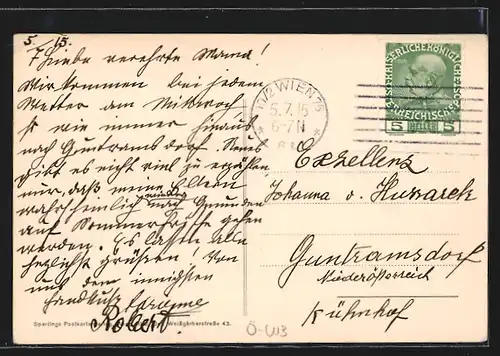 5/7 15.
Liebe verehrte Mama!
Wir kommen bei jedem
Wetter am Mittwoch
so wie immer hinaus
nach Guntramsdorf. Neues
gibt es nicht viel zu erzählen,
nur, daß meine Eltern
wahrscheinlich nach Gmunden
auf Sommerfrische gehen
werden. Es lassen alle
herzlichst grüßen! Von
und dem innigsten
Handkuß
Robert.
WIEN 75
5.7.15
6-7N
KAISERLICHE KÖNIGLICHE ÖSTERREICHISCHE POST
5 HELLER 5
Exzellenz
Johanna v. Hussarek
Guntramsdorf
Niederösterreich
Kühnhof
Sperlings Postkarten
Weißgärberstraße 43.
Ö-W3